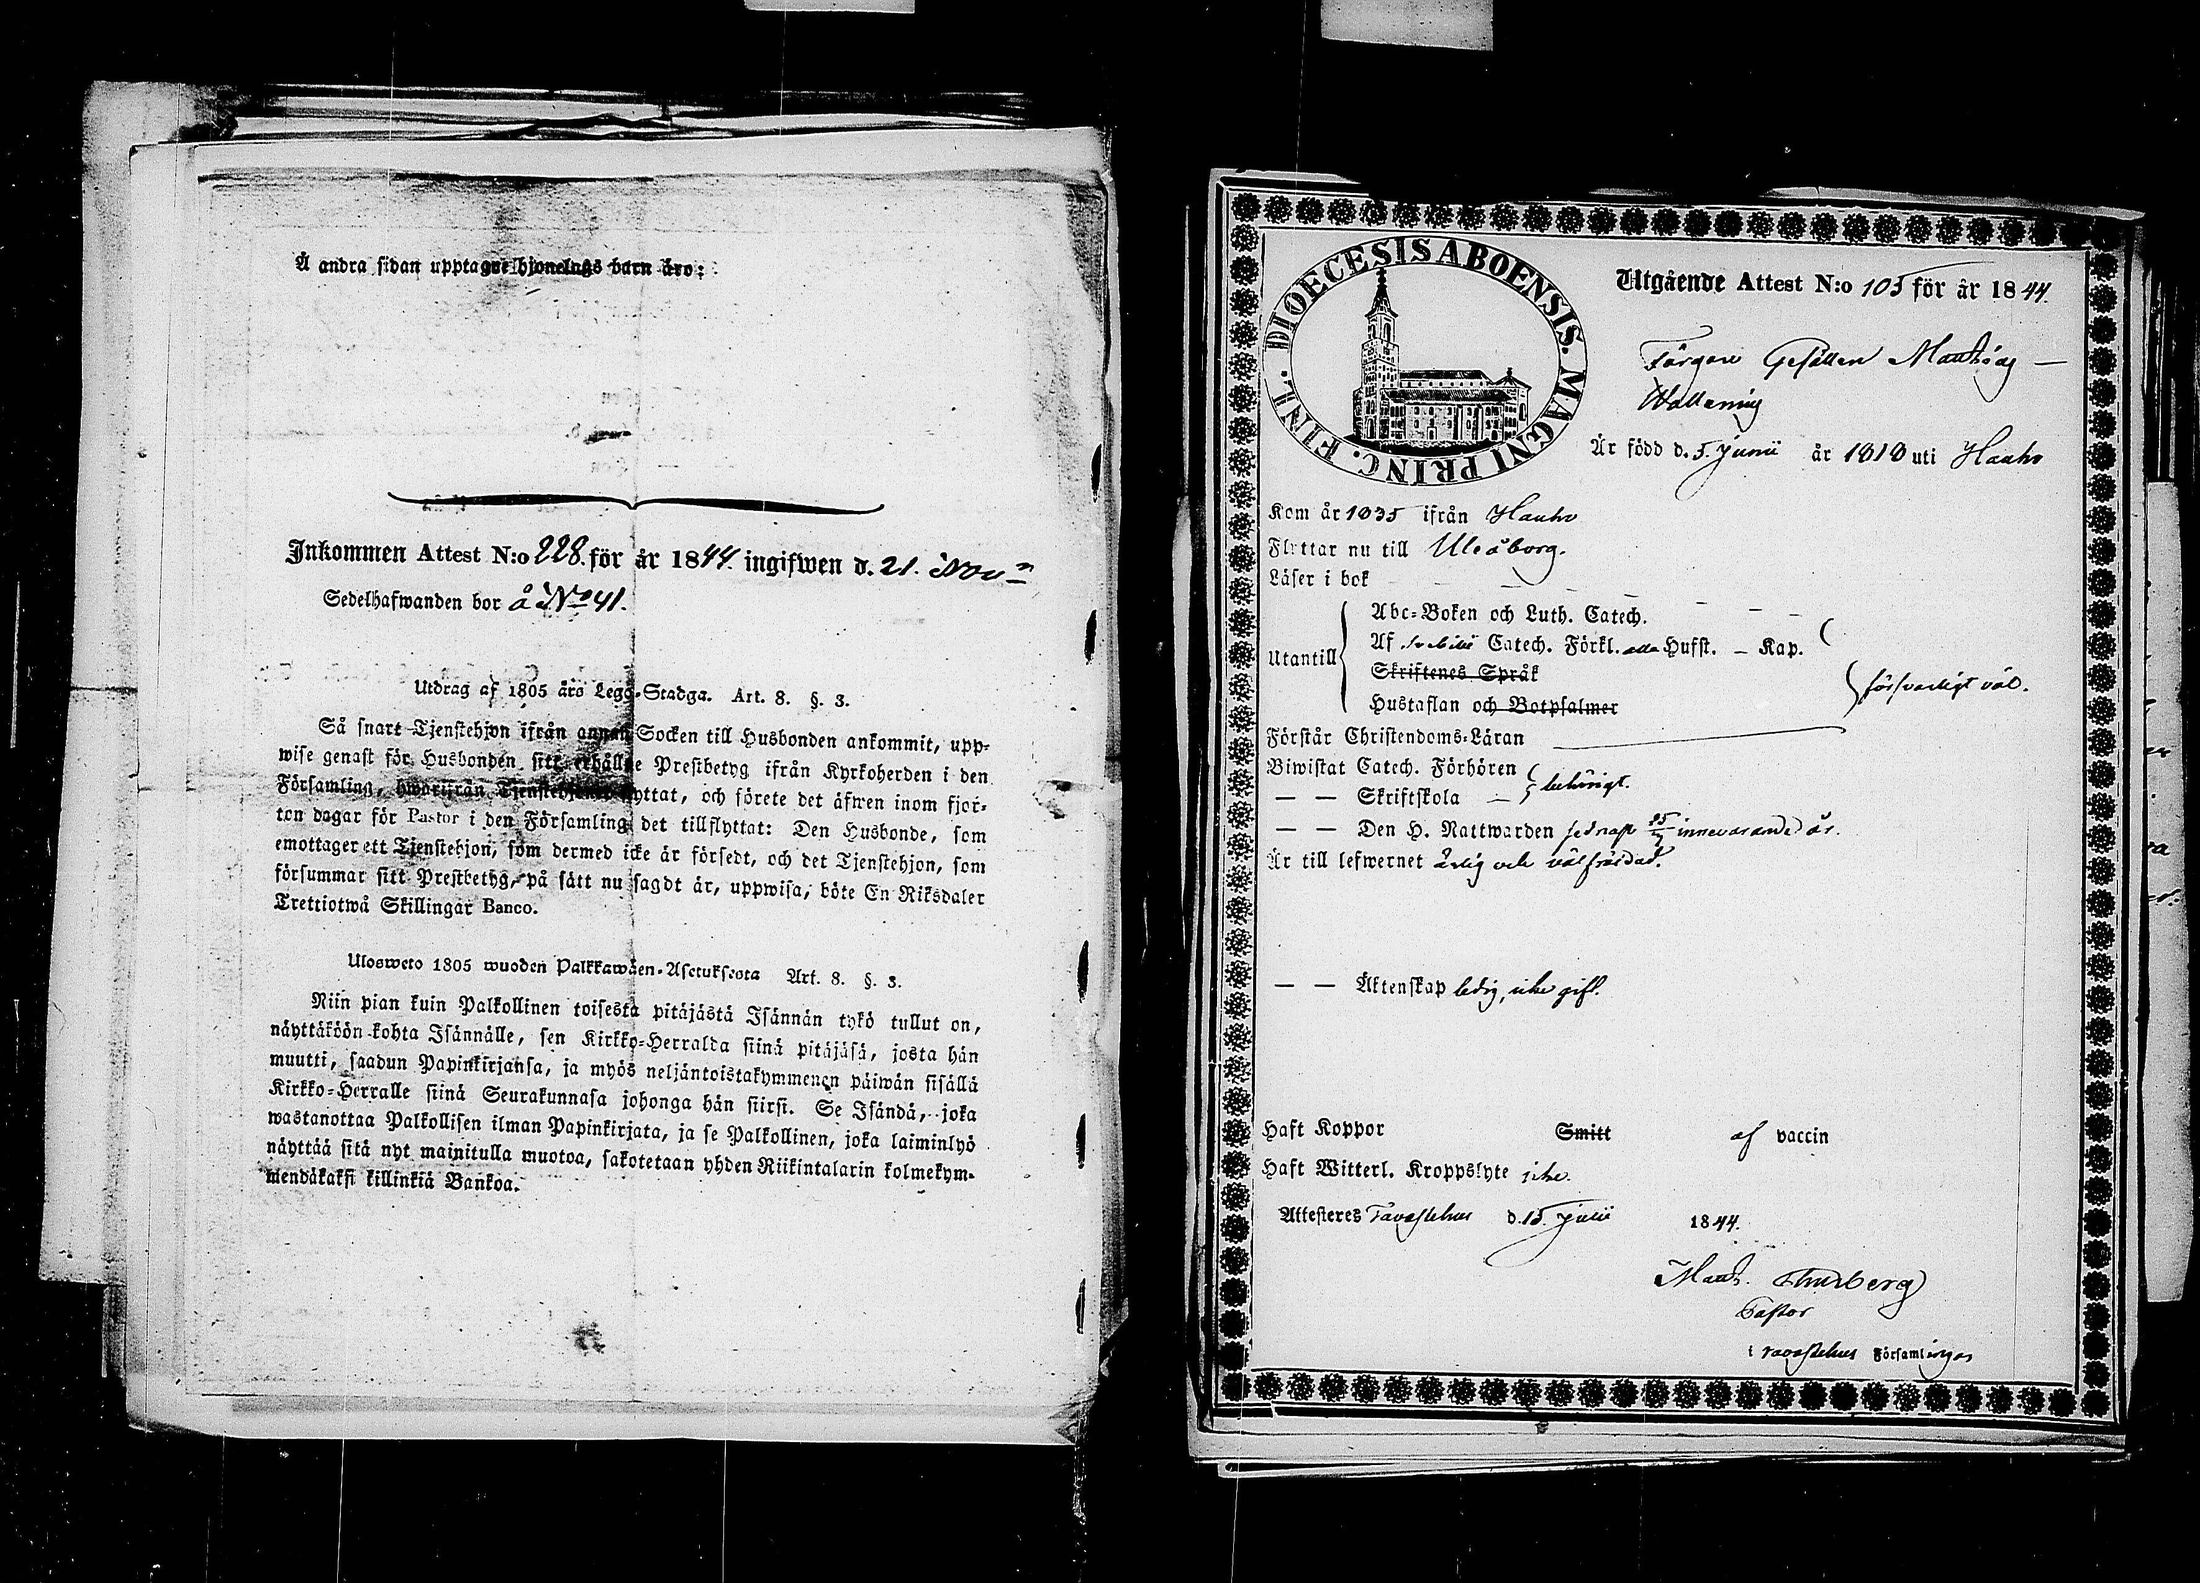 Å andra sidan upptagne hjonelags barn äro:
Inkommen Attest N:o 228. för år 1844. ingifwen d. 21. Nov:
Sedelhafwanden bor å No 41.
Utdrag af 1805 års Lego-Stadga. Art. 8. §. 3.
Så snart Tjenstehjon ifrån annan Socken till Husbonden ankommit, upp-
wise genast för Husbonden sitt erhållne Prestbetyg ifrån Kyrkoherden i den
Församling, hwarifrån Tjenstehjonet flyttat, och förete det äfwen inom fjor-
ton dagar för Pastor i den Församling det tillflyttat: Den Husbonde, som
emottager ett Tjenstehjon, som dermed icke är försedt, och det Tjenstehjon, som
försummar sitt Prestbetyg, på sätt nu sagdt är, uppwisa, böte En Riksdaler
Trettiotwå Skillingar Banco.
Ulosweto 1805 wuoden Palkkawäen-Asetuksesta Art. 8. §. 3.
Niin pian kuin Palkollinen toisesta pitäjästä Isännän tykö tullut on,
näyttäköön kohta Isännälle, sen Kirkko-Herralda siinä pitäjäsä, josta hän
muutti, saadun Papinkirjansa, ja myös neljäntoistakymmenen päiwän sisällä
Kirkko-Herralle siinä Seurakunnasa johonga hän siirsi. Se Isändä, joka
wastanottaa Palkollisen ilman Papinkirjata, ja se Palkollinen, joka laiminlyö
näyttää sitä nyt mainitulla muotoa, sakotetaan yhden Riikintalarin kolmekym-
mendäkaksi killinkiä Bankoa.
DIOECESIS ABOENSIS. MAGNI PRINC. FINL.
Utgående Attest N:o 105 för år 1844.
Färgare Gesällen Matts
Är född d. 5. Junii år 1818 uti Hauho
Kom år 1835 ifrån Hauho
Flyttar nu till Uleåborg.
Läser i bok
Utantill
Abc-Boken och Luth. Catech.
Af Svebilii Catech. Förkl. alla Hufst. – Kap.
Skriftenes Språk
Hustaflan och Botpsalmer
försvarligt väl.
Förstår Christendoms-Läran
Biwistat Catech. Förhören
behörigt.
— — Skriftskola —
— — Den H. Nattwarden sednast innevarande år.
Är till lefwernet ärlig och välfräjdad.
— — Äktenskap ledig, icke gift.
Haft Koppor Smitt af vaccin
Haft Witterl. Kroppslyte icke.
Attesteres Tavastehus d. 15. Julii 1844.
Matts. Thurberg
Pastor
i Tavastehus Församlingar